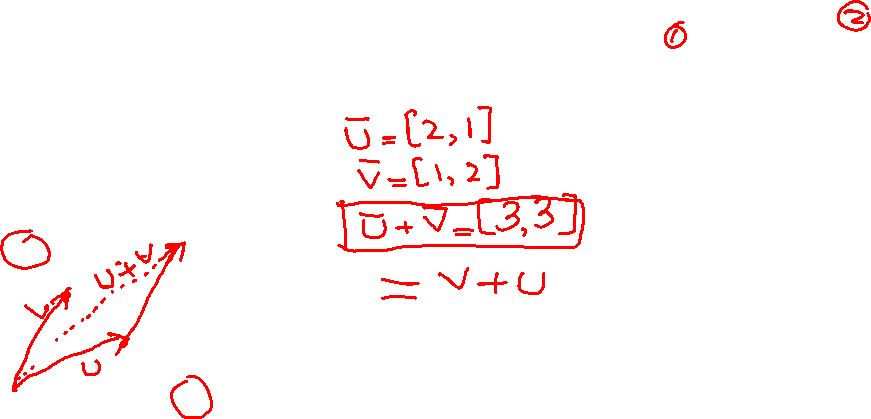 ① ②
ū = [2, 1]
v̄ = [1, 2]
ū + v̄ = [3, 3]
= v + u
u + v
v
u